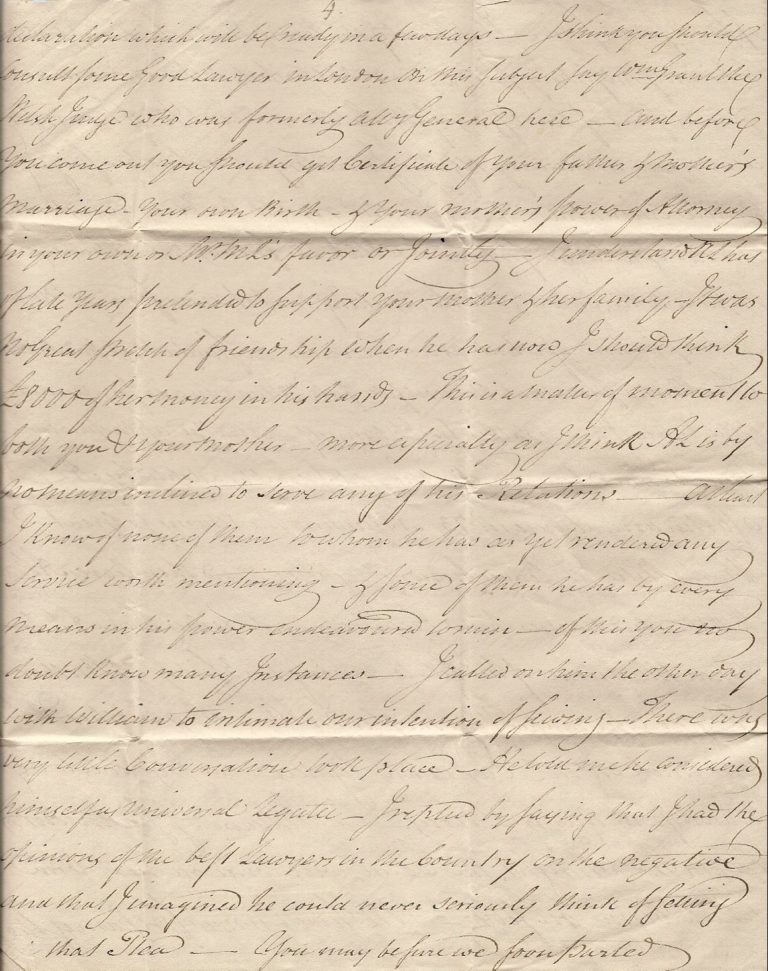 4
declaration which will be ready in a few days — I think you should
Consult some Good Lawyer in London on this subject say Wm Grant the
Welsh Judge who was formerly Atty General here — and before
You come out you should get Certificate of Your father & Mother's
Marriage — Your own Birth — & Your mother's power of Attorney
in your own or Mr. 's favor or Jointly — I understand has
of late Years pretended to support your mother & her family — It was
No Great stretch of friendship when he has now I should think
£8000 of her money in his hands — This is a matter of moment to
both you & your mother — more especially as I think is by
no means inclined to serve any of his Relations — at least
I know of none of them to whom he has as yet rendered any
Service worth mentioning — & some of them he has by every
means in his power endeavoured to ruin — of this you no
doubt know many Instances — I called on him the other day
with William to intimate our intention of — There was
very little Conversation took place — He told me he considered
himself as Universal Legatee — I replied by saying that I had the
opinions of the best Lawyers in the Country on the negative
and that I imagined he could never seriously think of setting
that Plea — You may be sure we soon parted